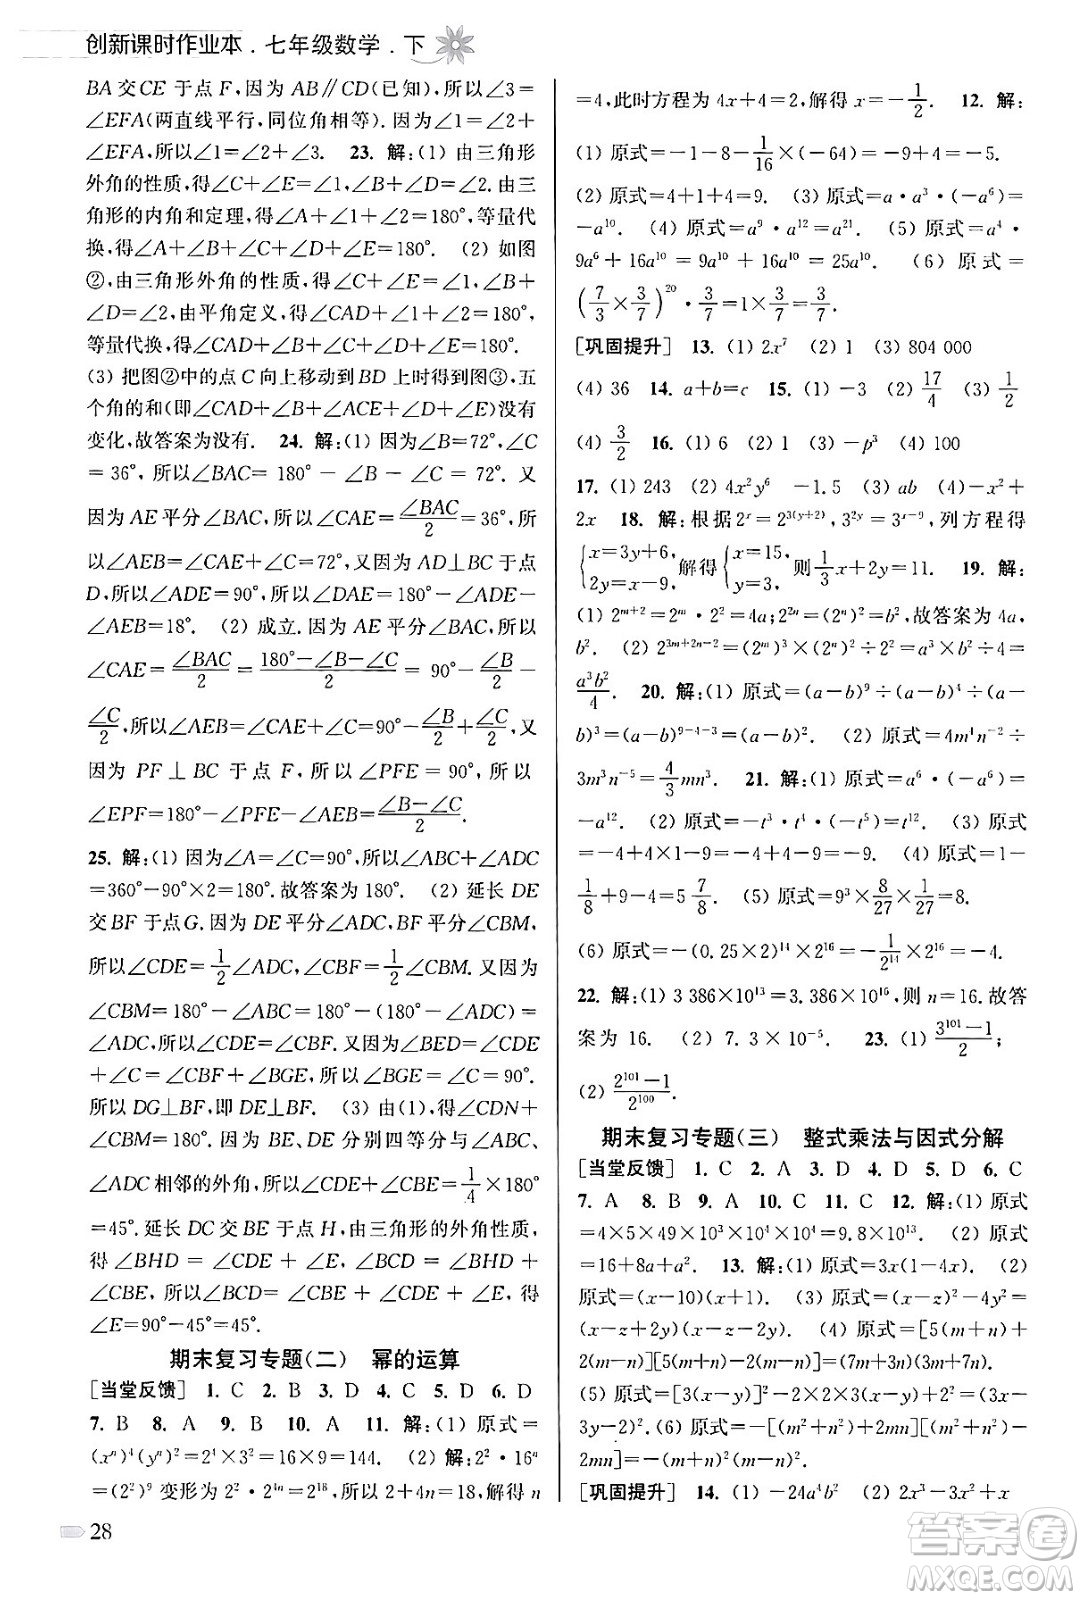 创新课时作业本.七年级数学.下
BA交CE于点F,因为AB∥CD(已知),所以∠3=
∠EFA(两直线平行,同位角相等).因为∠1=∠2+
∠EFA,所以∠1=∠2+∠3. 23. 解:(1)由三角形
外角的性质,得∠C+∠E=∠1,∠B+∠D=∠2.由三
角形的内角和定理,得∠A+∠1+∠2=180°,等量代
换,得∠A+∠B+∠C+∠D+∠E=180°. (2)如图
②,由三角形外角的性质,得∠C+∠E=∠1,∠B+
∠D=∠2,由平角定义,得∠CAD+∠1+∠2=180°,
等量代换,得∠CAD+∠B+∠C+∠D+∠E=180°.
(3)把图②中的点C向上移动到BD上时得图③,五
个角的和(即∠CAD+∠B+∠ACE+∠D+∠E)没有
变化,故答案为没有. 24. 解:(1)因为∠B=72°,∠C
=36°,所以∠BAC=180°-∠B-∠C=72°.又
因为AE平分∠BAC,所以∠CAE=∠BAC/2=36°,所
以∠AEB=∠CAE+∠C=72°,因为AD⊥BC于点
D,所以∠ADE=90°,所以∠DAE=∠ADE-
∠AEB=18°. (2)成立.因为AE平分∠BAC,所以
∠CAE=∠BAC/2=(180°-∠B-∠C)/2=90°-∠B/2-
∠C/2,所以∠AEB=∠CAE+∠C=90°-∠B/2+∠C/2,又
因为PF⊥BC于点F,所以∠PFE=90°,所以
∠EPF=180°-∠PFE-∠AEB=(∠B-∠C)/2.
25. 解:(1)因为∠A=∠C=90°,所以∠ABC+∠ADC
=360°-90°×2=180°.故答案为180°. (2)延长DE
交BF于点G.因为DE平分∠ADC,BF平分∠CBM,
所以∠CDE=1/2∠ADC,∠CBF=1/2∠CBM.又因为
∠CBM=180°-∠ABC=180°-(180°-∠ADC)=
∠ADC,所以∠CDE=∠CBF.又因为∠BED=∠CDE
+∠C=∠CBF+∠BGE,所以∠BGE=∠C=90°.
所以DG⊥BF,即DE⊥BF. (3)由(1),得∠CDN+
∠CBM=180°,因为BE、DE分别四等分∠ABC、
∠ADC相邻的外角,所以∠CDE+∠CBE=1/4×180°
=45°.延长DC交BE于点H,由三角形的外角性质,
得∠BHD=∠CDE+∠E,∠BCD=∠BHD+
∠CBE,所以∠BCD=∠CBE+∠CDE+∠E,得
∠E=90°-45°=45°.
期末复习专题(二) 幂的运算
[当堂反馈] 1. C 2. A 3. C 4. B 5. D 6. D
7. B 8. A 9. D 10. B 11. 解:(1)原式=
(xⁿ)⁴(yⁿ)²=2⁴×3²=16×9=144. (2)解:2²·16ⁿ
=(2²)⁹变形为2²·2⁴ⁿ=2¹⁸,所以2+4n=18,解得n
=4,此时方程为4x+4=2,解得x=-1/2. 12. 解:
(1)原式=-1-8-1/16×(-64)=-9+4=-5.
(2)原式=4+1+4=9. (3)原式=a·a³·(-a⁶)=
-a¹⁰. (4)原式=a⁹·a¹²=a²¹. (5)原式=a⁴·
9a⁶+16a¹⁰=9a¹⁰+16a¹⁰=25a¹⁰. (6)原式=
(7/3×3/7)²⁰·3/7=1×3/7=3/7.
[巩固提升] 13. (1)2x⁷ (2)1 (3)804 000
(4)36 14. a+b=c 15. (1)-3 (2)17/4 (3)1/2
(4)3/2 16. (1)6 (2)1 (3)-p³ (4)100
17. (1)243 (2)4x²y⁶ -1.5 (3)ab (4)-x²+
2x 18. 解:根据2ˣ=2³⁽ʸ⁺²⁾,3²ʸ=3ˣ⁻⁹,列方程得
{x=3y+6,2y=x-9,解得{x=15,y=3,则1/3x+2y=11. 19. 解:
(1)2ᵐ⁺²=2ᵐ·2²=4a;2²ⁿ=(2ⁿ)²=b²,故答案为4a,
b². (2)2³ᵐ⁺²ⁿ⁻²=(2ᵐ)³×(2ⁿ)²÷2²=a³×b²÷4=
a³b²/4. 20. 解:(1)原式=(a-b)⁹÷(a-b)⁴÷(a-
b)³=(a-b)⁹⁻⁴⁻³=(a-b)². (2)原式=4m⁴n⁻²÷
3m³n⁻⁵=4/3mn³. 21. 解:(1)原式=a⁶·(-a⁶)=
-a¹². (2)原式=-t³·t⁴·(-t⁵)=t¹². (3)原式=
-4+4×1-9=-4+4-9=-9. (4)原式=1-
1/8+9-4=5 7/8. (5)原式=9³×8/27×1/27=8.
(6)原式=-(0.25×2)¹⁴×2¹⁶=-1/2¹⁴×2¹⁶=-4.
22. 解:(1)3 386×10¹³=3.386×10¹⁶,则n=16.故答
案为16. (2)7.3×10⁻⁵. 23. (1)(3¹⁰¹-1)/2;
(2)(2¹⁰¹-1)/2¹⁰⁰.
期末复习专题(三) 整式乘法与因式分解
[当堂反馈] 1. C 2. A 3. D 4. D 5. D 6. C
7. A 8. B 9. A 10. C 11. C 12. 解:(1)原式
=4×5×49×10³×10⁴×10⁴=9.8×10¹³. (2)原式
=16+8a+a². 13. 解:(1)原式=3x(1-4x). (2)
原式=(x-10)(x+1). (3)原式=(x-z)²-4y²=
(x-z+2y)(x-z-2y). (4)原式=[5(m+n)+
2(m-n)][5(m+n)-2(m-n)]=(7m+3n)(3m+7n).
(5)原式=[3(x-y)]²-2×3(x-y)×2+2²=(3x-
3y-2)².(6)原式=-[(m²+n²)+2mn][(m²+n²)-
2mn]=-(m+n)²(m-n)².
[巩固提升] 14. (1)-24a⁴b² (2)2x³-3x²+x
28
答案圈
MXQE.COM